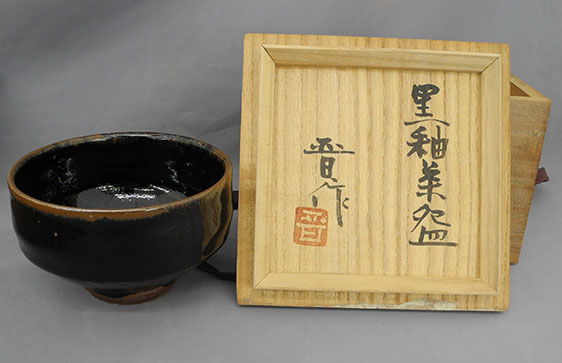 黒釉茶盌
晋作
晋